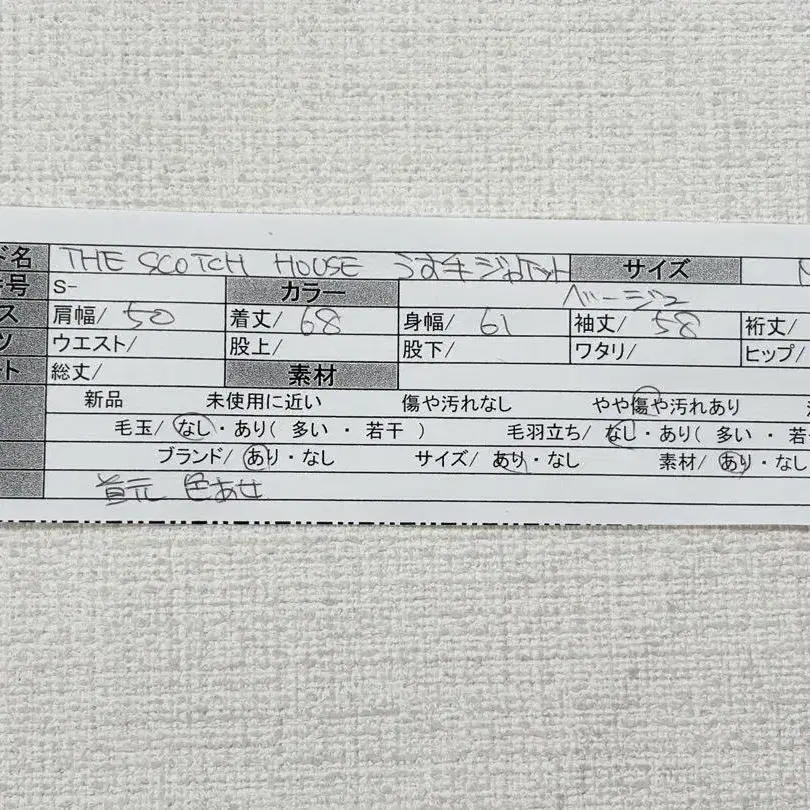 ド名 THE SCOTCH HOUSE うす手ジャケット サイズ M
番号 S- カラー ベージュ
ス 肩幅/ 50 着丈/ 68 身幅/ 61 袖丈/ 58 裄丈/
ツ ウエスト/ 股上/ 股下/ ワタリ/ ヒップ/
ト 総丈/ 素材
新品 未使用に近い 傷や汚れなし やや傷や汚れあり
毛玉/ なし・あり( 多い ・ 若干 ) 毛羽立ち/ なし・あり( 多い ・ 若
ブランド/ あり・なし サイズ/ あり・なし 素材/ あり・なし
首元 色あせ